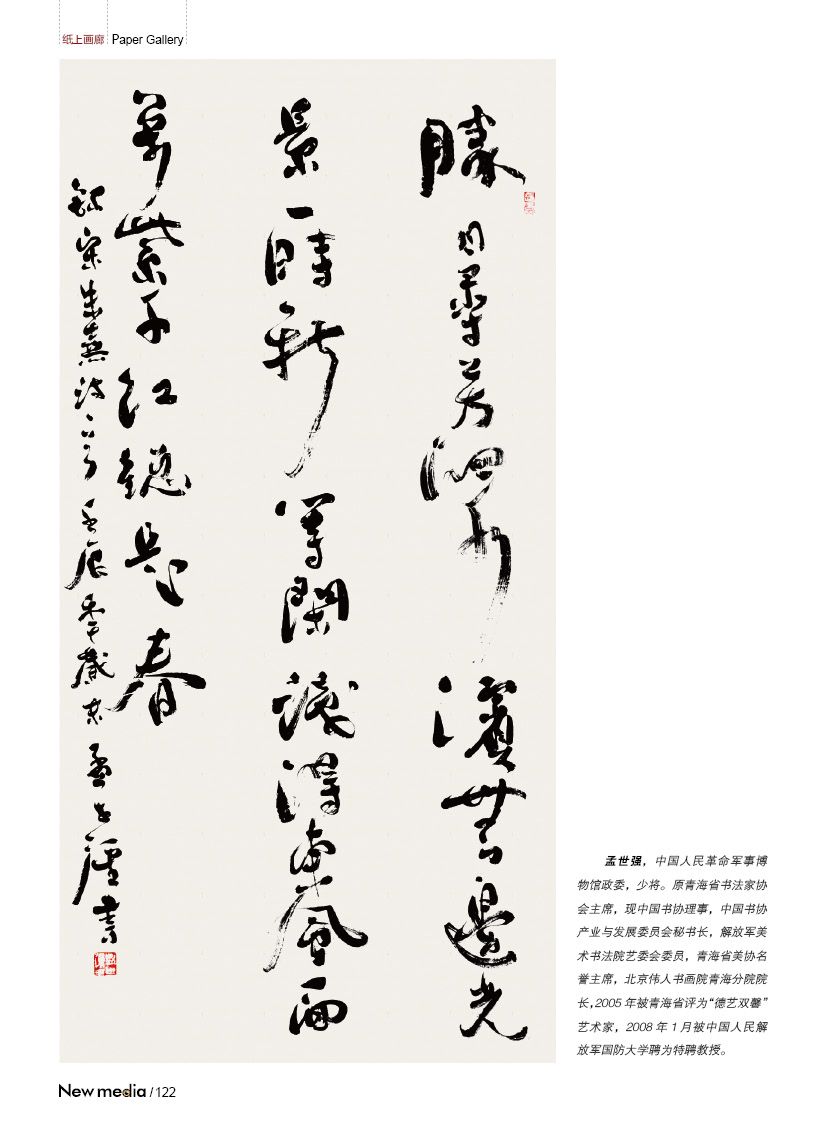 纸上画廊 Paper Gallery
勝日尋芳泗水濱無邊光
景一時新等閑識得東風面
萬紫千紅總是春
錄宋朱熹詩一首壬辰秊歲末孟世强書
孟世强，中国人民革命军事博
物馆政委，少将。原青海省书法家协
会主席，现中国书协理事，中国书协
产业与发展委员会秘书长，解放军美
术书法院艺委会委员，青海省美协名
誉主席，北京伟人书画院青海分院院
长，2005 年被青海省评为“德艺双馨”
艺术家，2008 年 1 月被中国人民解
放军国防大学聘为特聘教授。
New media / 122